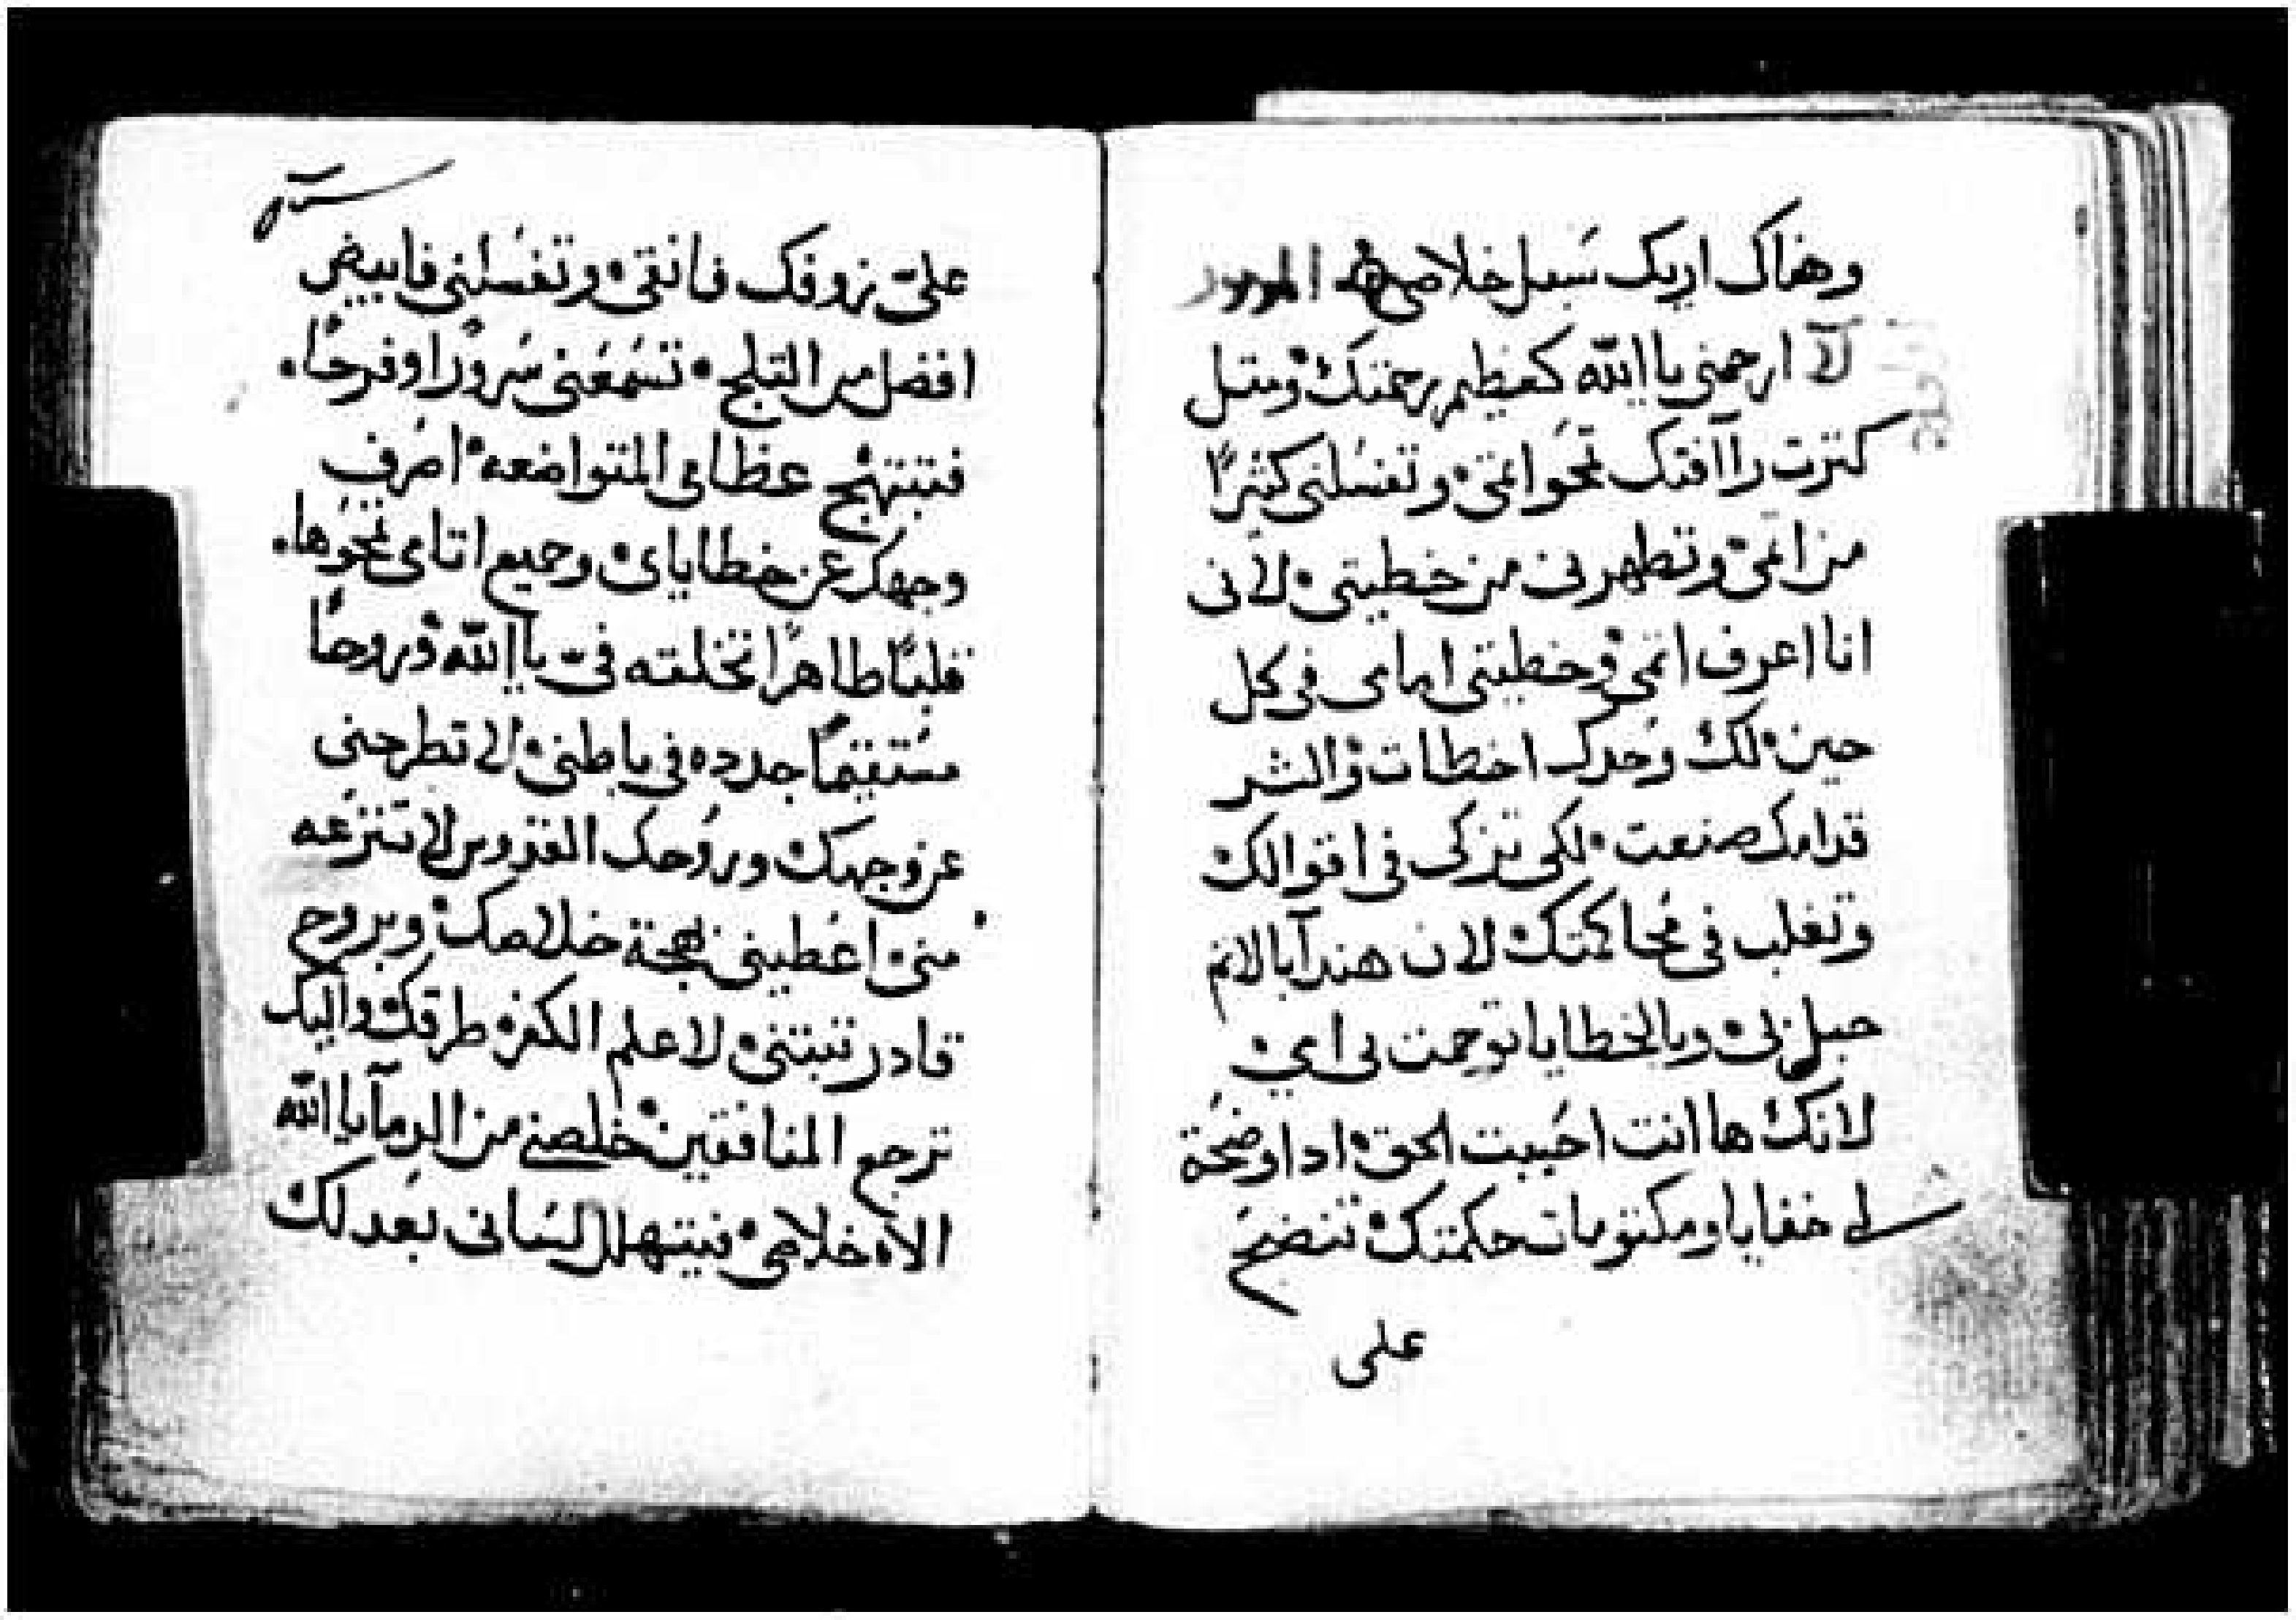 وهناك اريك سبل خلاصي المزمور
ارحمني يا الله كعظيم رحمتك ومتل
كترت راآفتك تمحوا اتمي وتغسلني كثيرًا
من اتمي وتطهرني من خطيتي لاني
انا اعرف اتمي وخطيتي امامي في كل
حين لك وحدك اخطات والشر
قدامك صنعت لكي تزكى في اقوالك
وتغلب في محاكمتك لان هندآ بالاتم
حبل بي وبالخطايا توحمت بي امي
لانك ها انت احببت الحق اد اوضحة
لي خفايا ومكنومات حكمتك تنضح
على
عليّ زوفك فانقى وتغسلني فابيض
افضل من التلج تسمعني سرورًا وفرحًا
فتبتهج عظامي المتواضعه اصرف
وجهك عن خطاياي وجميع اتامي تمحوها
قلبًا طاهرًا تخلقه فيّ يا الله وروحًا
مستقيمًا جدده في باطني لا تطرحني
من وجهك وروحك القدوس لا تنزعه
مني اعطيني بهجة خلاصك وبروح
قادر تتبتني لاعلم الكفره طرقك واليك
ترجع المنافقين خلصني من الدمآ يا الله
الاه خلاصي فيتهلل لساني بعدلك